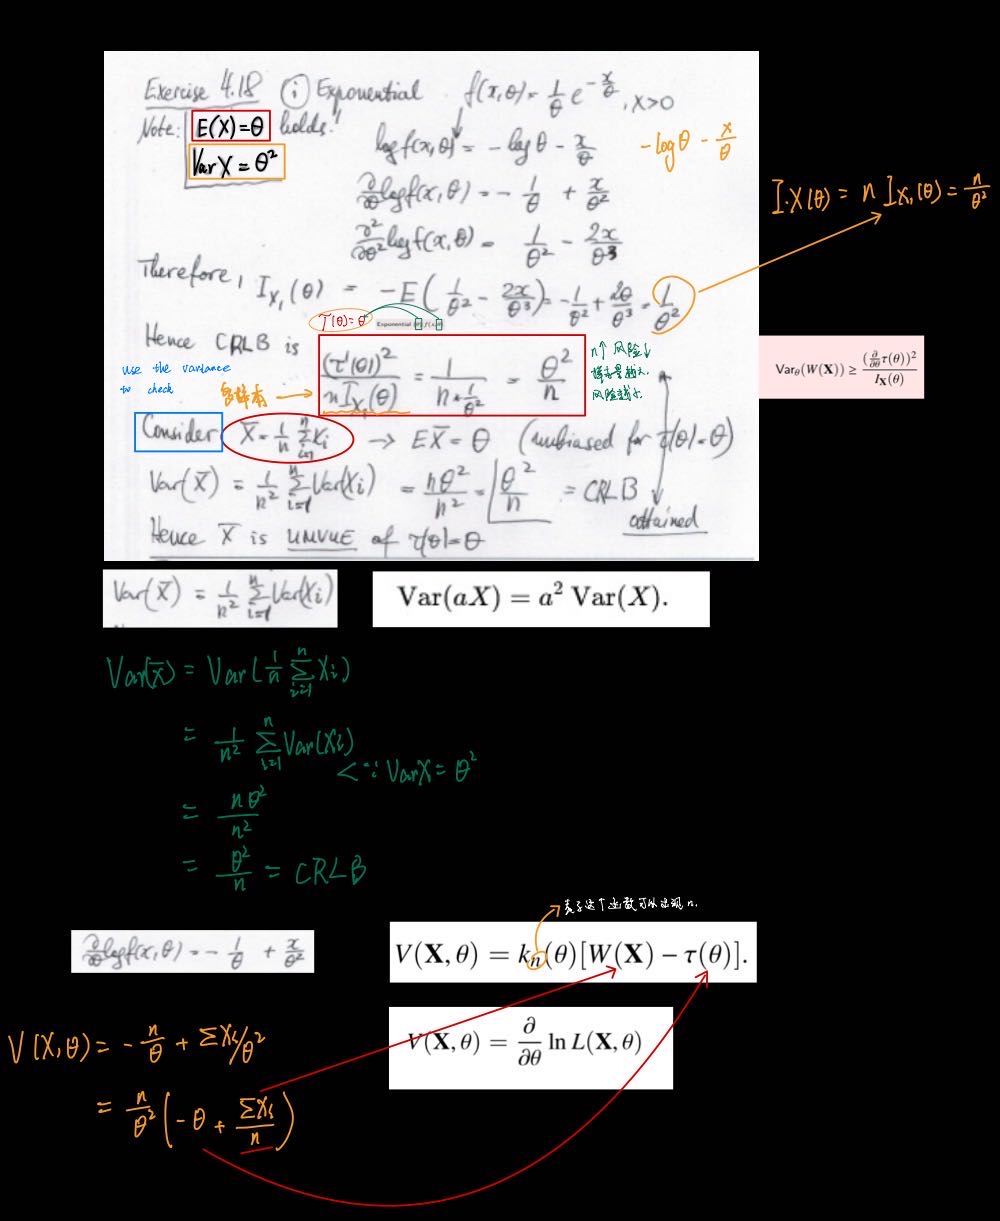 Exercise 4.18 (i) Exponential f(x,θ) = 1/θ e^{-x/θ}, x>0
Note: E(X)=θ holds!
Var X = θ²
log f(x,θ) = - log θ - x/θ
-logθ - x/θ
∂/∂θ log f(x,θ) = - 1/θ + x/θ²
∂²/∂θ² log f(x,θ) = 1/θ² - 2x/θ³
I.X(θ) = n I_{X₁}(θ) = n/θ²
Therefore, I_{X₁}(θ) = -E( 1/θ² - 2x/θ³ ) = -1/θ² + 2θ/θ³ = 1/θ²
τ(θ)=θ
Exponential
Hence CRLB is (τ'(θ))² / n I_{X₁}(θ) = 1 / n * 1/θ² = θ²/n
n↑ 风险↓
样本量越大,
风险越小.
Var_θ(W(X)) ≥ (∂/∂θ τ(θ))² / I_X(θ)
use the variance
to check
Consider X̄ = 1/n Σ_{i=1}^n X_i → E X̄ = θ (unbiased for τ(θ)=θ)
Var(X̄) = 1/n² Σ_{i=1}^n Var(X_i) = nθ²/n² = θ²/n = CRLB
attained
Hence X̄ is UMVUE of τ(θ)=θ
Var(X̄) = 1/n² Σ_{i=1}^n Var(X_i)
Var(aX) = a² Var(X).
Var(x̄) = Var( 1/n Σ_{i=1}^n X_i )
= 1/n² Σ_{i=1}^n Var(X_i)
<∵ VarX = θ²
= nθ²/n²
= θ²/n = CRLB
表示这个函数可以出现 n.
∂/∂θ log f(x,θ) = - 1/θ + x/θ²
V(X, θ) = k_n(θ)[W(X) − τ(θ)].
V(X, θ) = ∂/∂θ ln L(X, θ)
V(X,θ) = - n/θ + ΣX_i/θ²
= n/θ² ( -θ + ΣX_i/n )